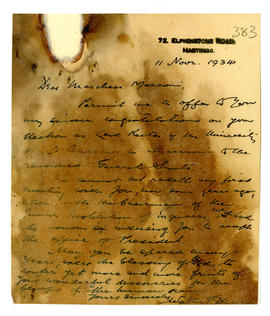 383
72, ELPHINSTONE ROAD,
HASTINGS.
11 Novr. 1934
Dear Marchese Marconi,
Permit me to offer to you
my sincere congratulations on your
election as Lord Rector of the University
of St Andrews in succession to the
renowned General Smuts.
I cannot but recall my first
meeting with you, now some years ago,
when, with the Chairman of the
Junior Institution of Engineers, I had
the honour of inducing you to accept
the office of President.
May you be spared many
years, under the blessing of God, to
render yet more and more fruits of
your wonderful discoveries for the
benefit of the human race.
Yours sincerely,